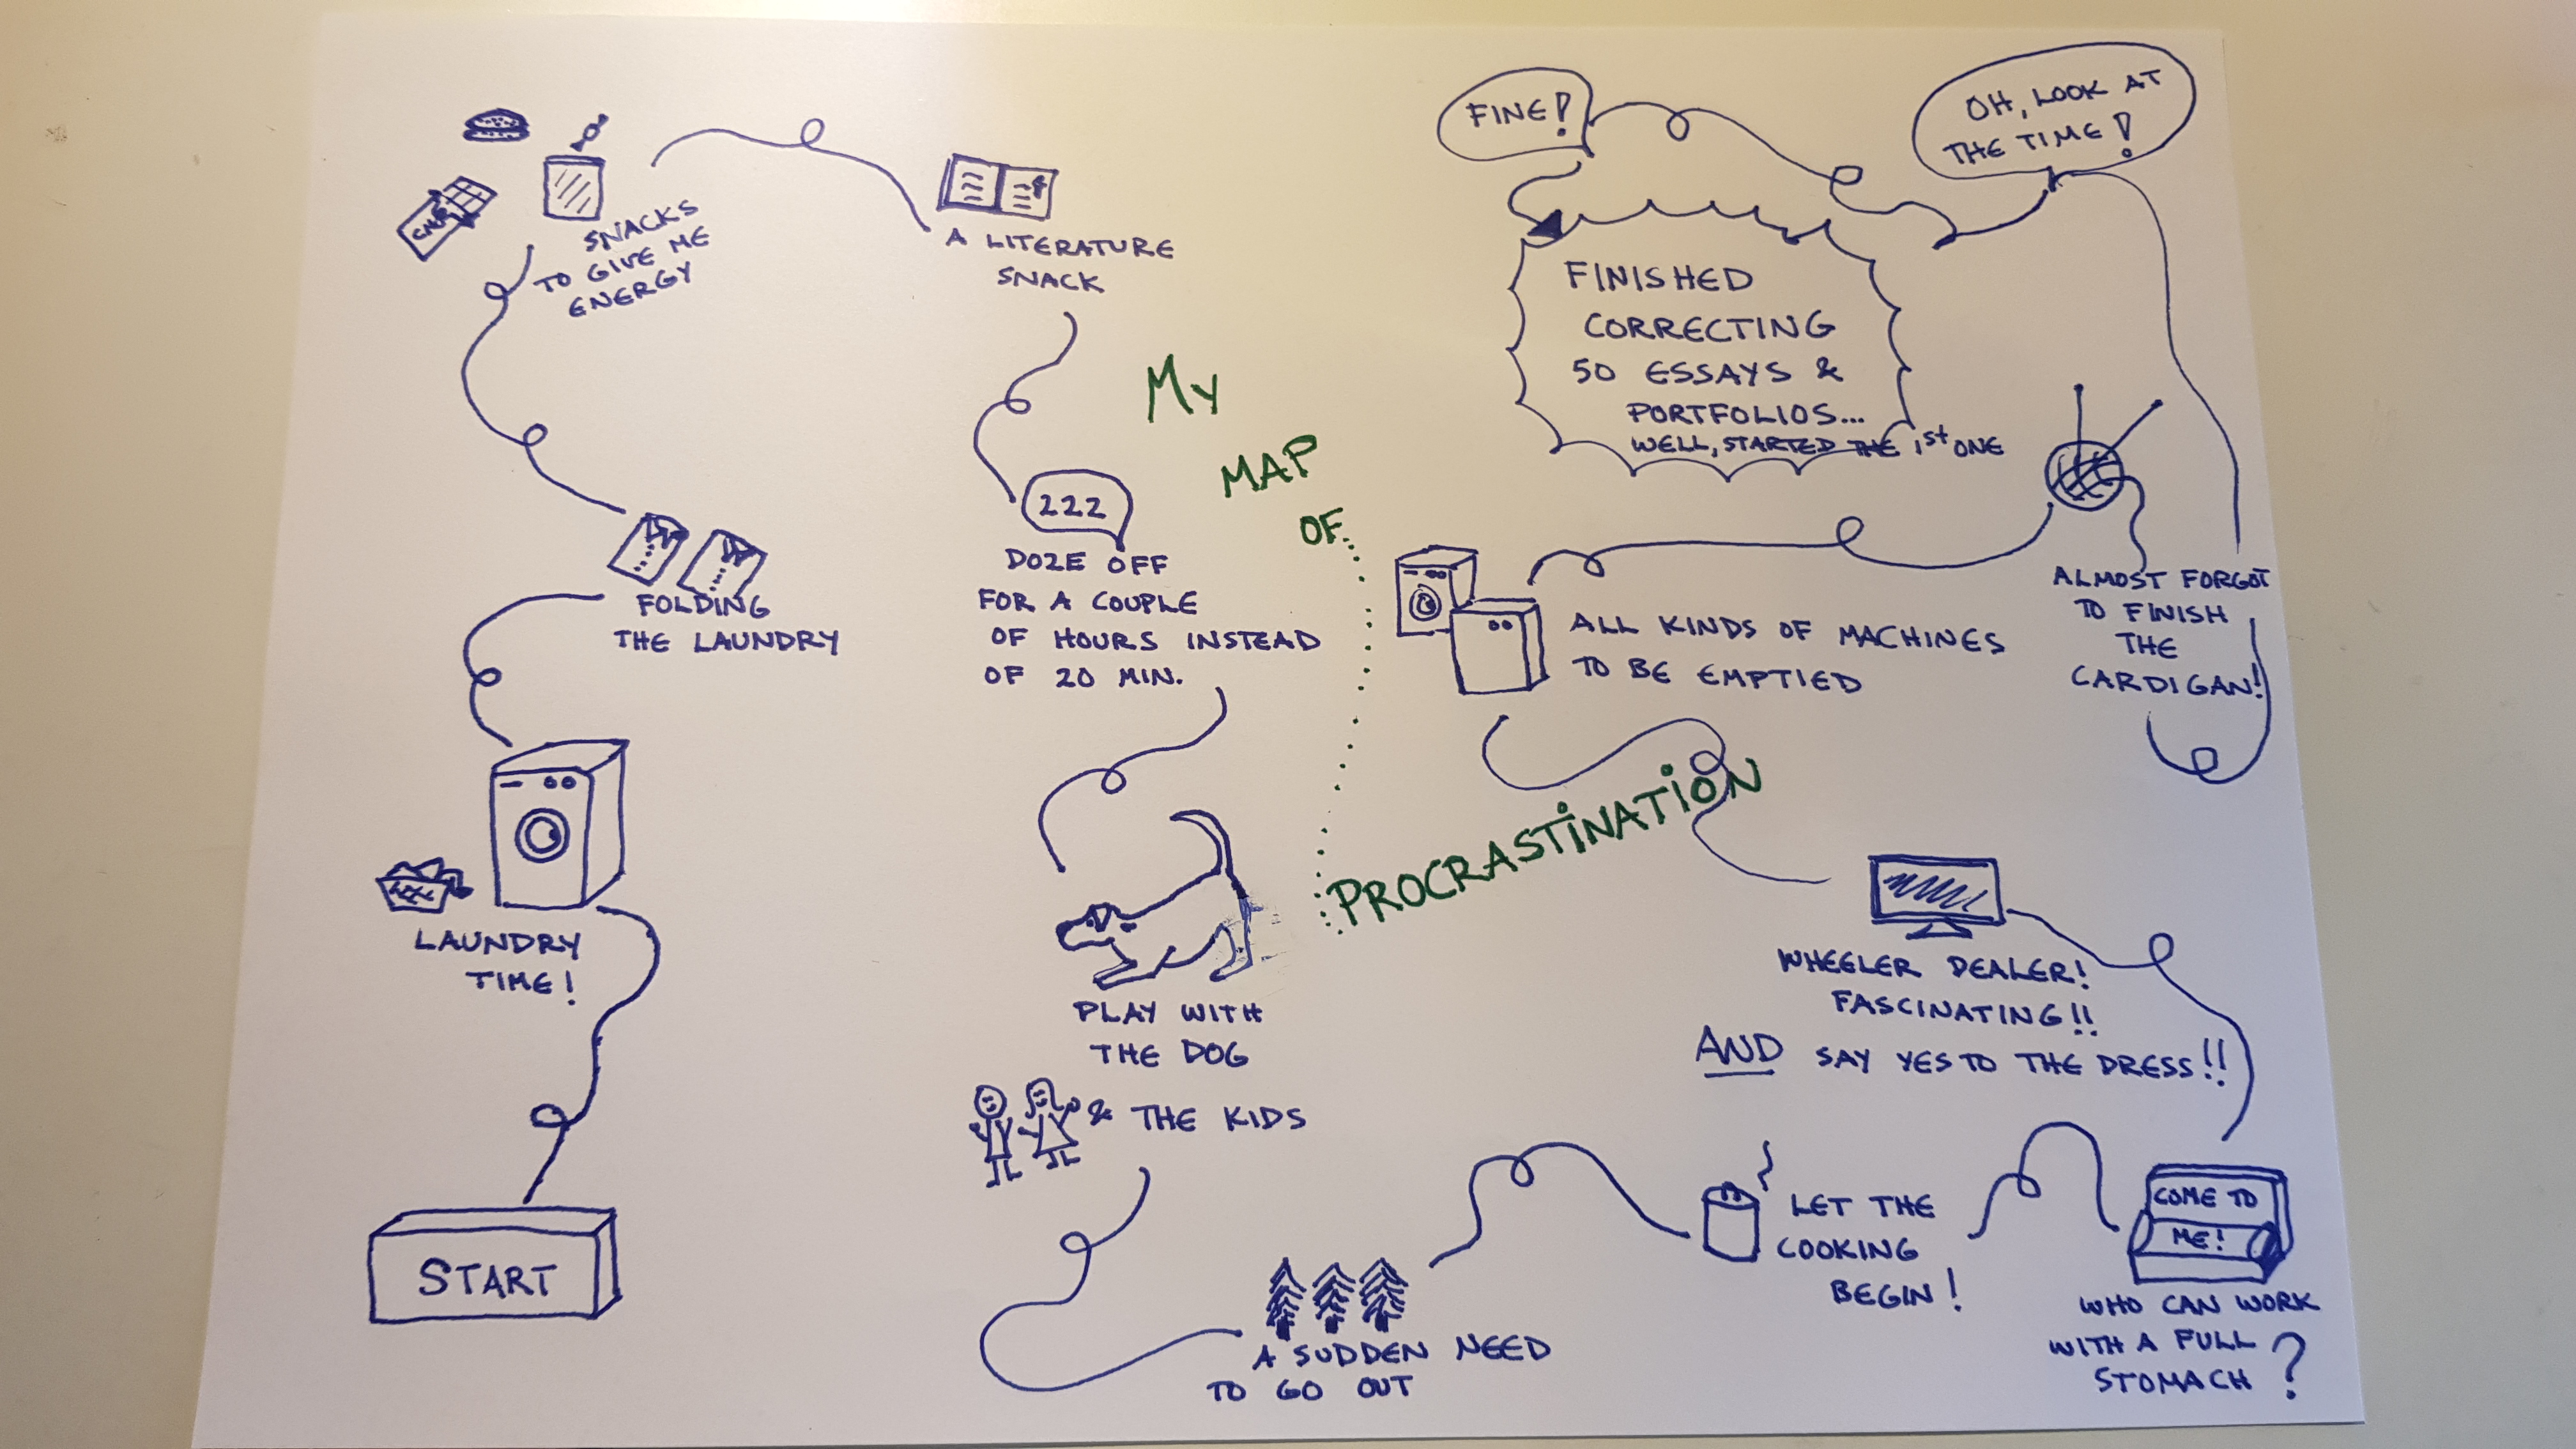 MY
MAP
OF
PROCRASTINATION
START
LAUNDRY
TIME!
FOLDING
THE LAUNDRY
SNACKS
TO GIVE ME
ENERGY
A LITERATURE
SNACK
ZZZ
DOZE OFF
FOR A COUPLE
OF HOURS INSTEAD
OF 20 MIN.
PLAY WITH
THE DOG
& THE KIDS
A SUDDEN NEED
TO GO OUT
LET THE
COOKING
BEGIN!
COME TO
ME!
WHO CAN WORK
WITH A FULL
STOMACH ?
WHEELER DEALER!
FASCINATING!!
AND SAY YES TO THE DRESS!!
ALL KINDS OF MACHINES
TO BE EMPTIED
ALMOST FORGOT
TO FINISH
THE
CARDIGAN!
OH, LOOK AT
THE TIME!
FINE!
FINISHED
CORRECTING
50 ESSAYS &
PORTFOLIOS...
WELL, STARTED THE 1st ONE